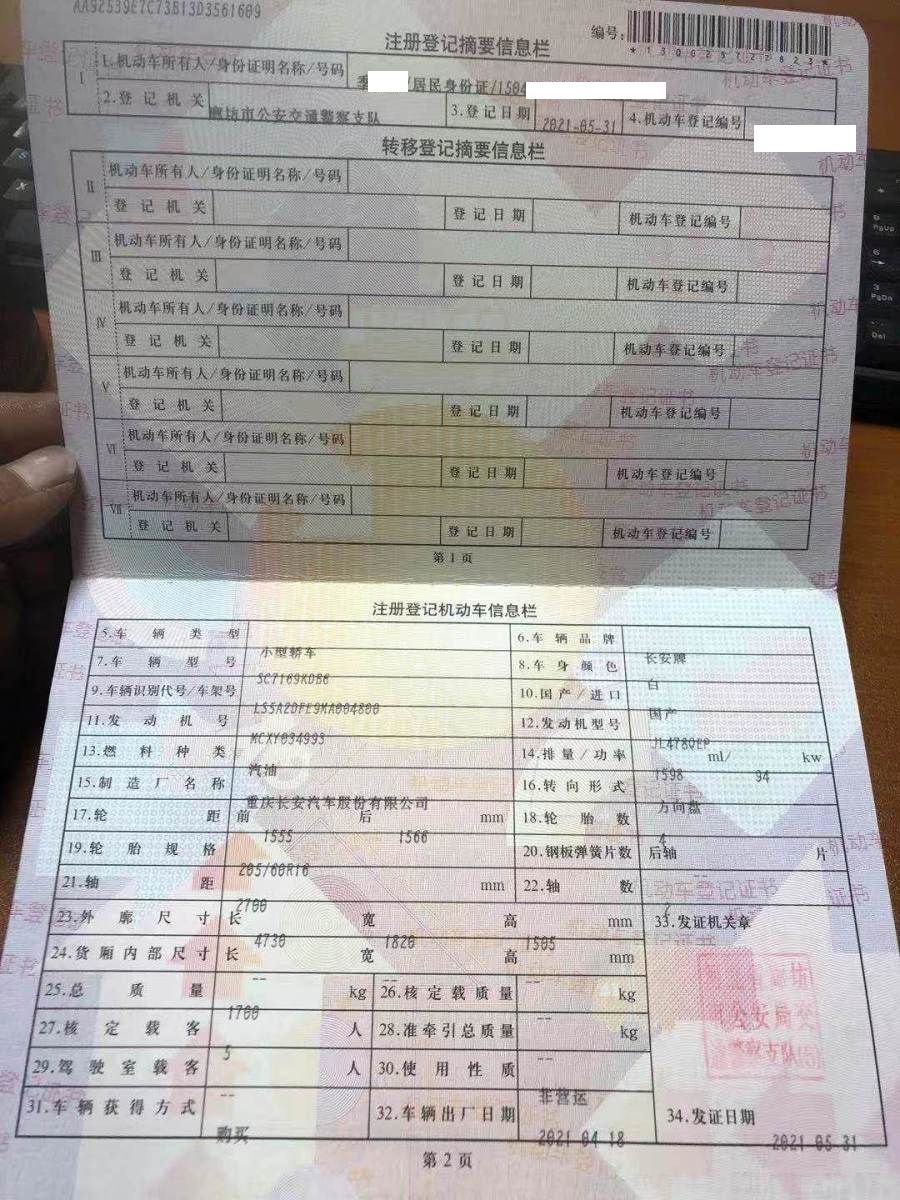 AA92539E7C73B13D3561609
注册登记摘要信息栏
编号:
*130025722823*
I
1.机动车所有人/身份证明名称/号码
李 /居民身份证/1504
2.登记机关
廊坊市公安交通警察支队
3.登记日期
2021-05-31
4.机动车登记编号
转移登记摘要信息栏
II
机动车所有人/身份证明名称/号码
登记机关
登记日期
机动车登记编号
III
机动车所有人/身份证明名称/号码
登记机关
登记日期
机动车登记编号
IV
机动车所有人/身份证明名称/号码
登记机关
登记日期
机动车登记编号
V
机动车所有人/身份证明名称/号码
登记机关
登记日期
机动车登记编号
VI
机动车所有人/身份证明名称/号码
登记机关
登记日期
机动车登记编号
VII
机动车所有人/身份证明名称/号码
登记机关
登记日期
机动车登记编号
第1页
注册登记机动车信息栏
5.车辆类型
小型轿车
6.车辆品牌
长安牌
7.车辆型号
SC7169KDB6
8.车身颜色
白
9.车辆识别代号/车架号
LS5A2DFE9MA004800
10.国产/进口
国产
11.发动机号
MCXY034993
12.发动机型号
JL478QEP
13.燃料种类
汽油
14.排量/功率
1598 ml/ 94 kw
15.制造厂名称
重庆长安汽车股份有限公司
16.转向形式
方向盘
17.轮距 前 1555 后 1566 mm
18.轮胎数
4
19.轮胎规格
205/60R16
20.钢板弹簧片数 后轴 -- 片
21.轴距
2700 mm
22.轴数
2
23.外廓尺寸 长 4730 宽 1820 高 1505 mm
33.发证机关章
24.货厢内部尺寸 长 -- 宽 -- 高 -- mm
25.总质量
1700 kg
26.核定载质量
-- kg
27.核定载客
5 人
28.准牵引总质量
-- kg
29.驾驶室载客
-- 人
30.使用性质
非营运
31.车辆获得方式
购买
32.车辆出厂日期
2021-04-18
34.发证日期
2021-05-31
第2页